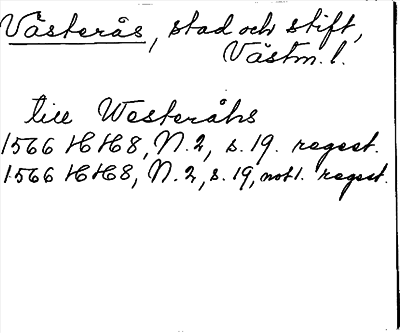 Västerås, stad och stift,
Västm. l.
till Westeråhs
1566 HH8, N. 2, s. 19. regest.
1566 HH8, N. 2, s. 19, not 1. regest.